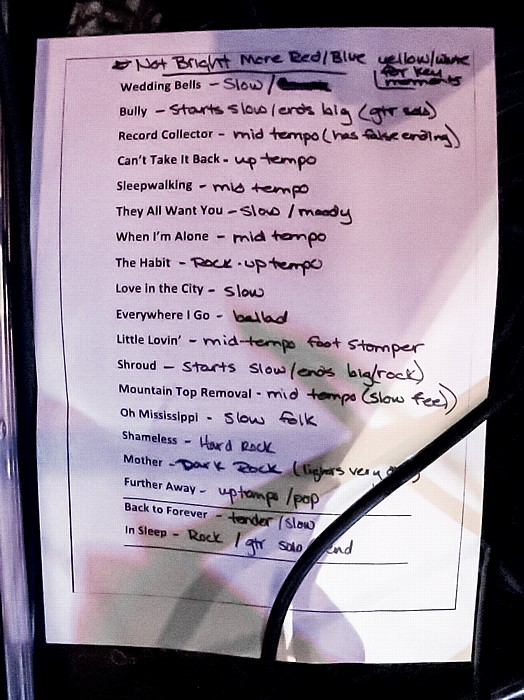 Not Bright More Red/Blue yellow/white
for key moments
Wedding Bells - Slow /
Bully - Starts slow/ends big (gtr solo)
Record Collector - mid tempo (has false ending)
Can't Take It Back - up tempo
Sleepwalking - mid tempo
They All Want You - Slow / moody
When I'm Alone - mid tempo
The Habit - Rock - up tempo
Love in the City - Slow
Everywhere I Go - ballad
Little Lovin' - mid-tempo foot stomper
Shroud - Starts slow/ends big/rock)
Mountain Top Removal - mid tempo (slow feel)
Oh Mississippi - Slow folk
Shameless - Hard Rock
Mother - Dark Rock (lights very
Further Away - uptempo /pop
Back to Forever - tender /slow
In Sleep - Rock / gtr solo end